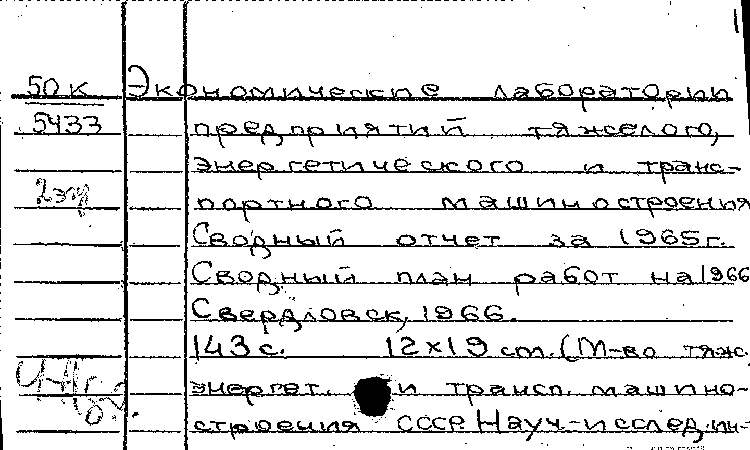 50к Экономические лаборатории
5433 предприятий тяжелого,
энергетического и транс-
2экз портного машиностроения
Сводный отчет за 1965г.
Сводный план работ на 1966
Свердловск, 1966.
143 с. 12x19 cm. (М-во тяж.
энергет. и трансп. машино-
строения СССР Науч.-исслед. ин-